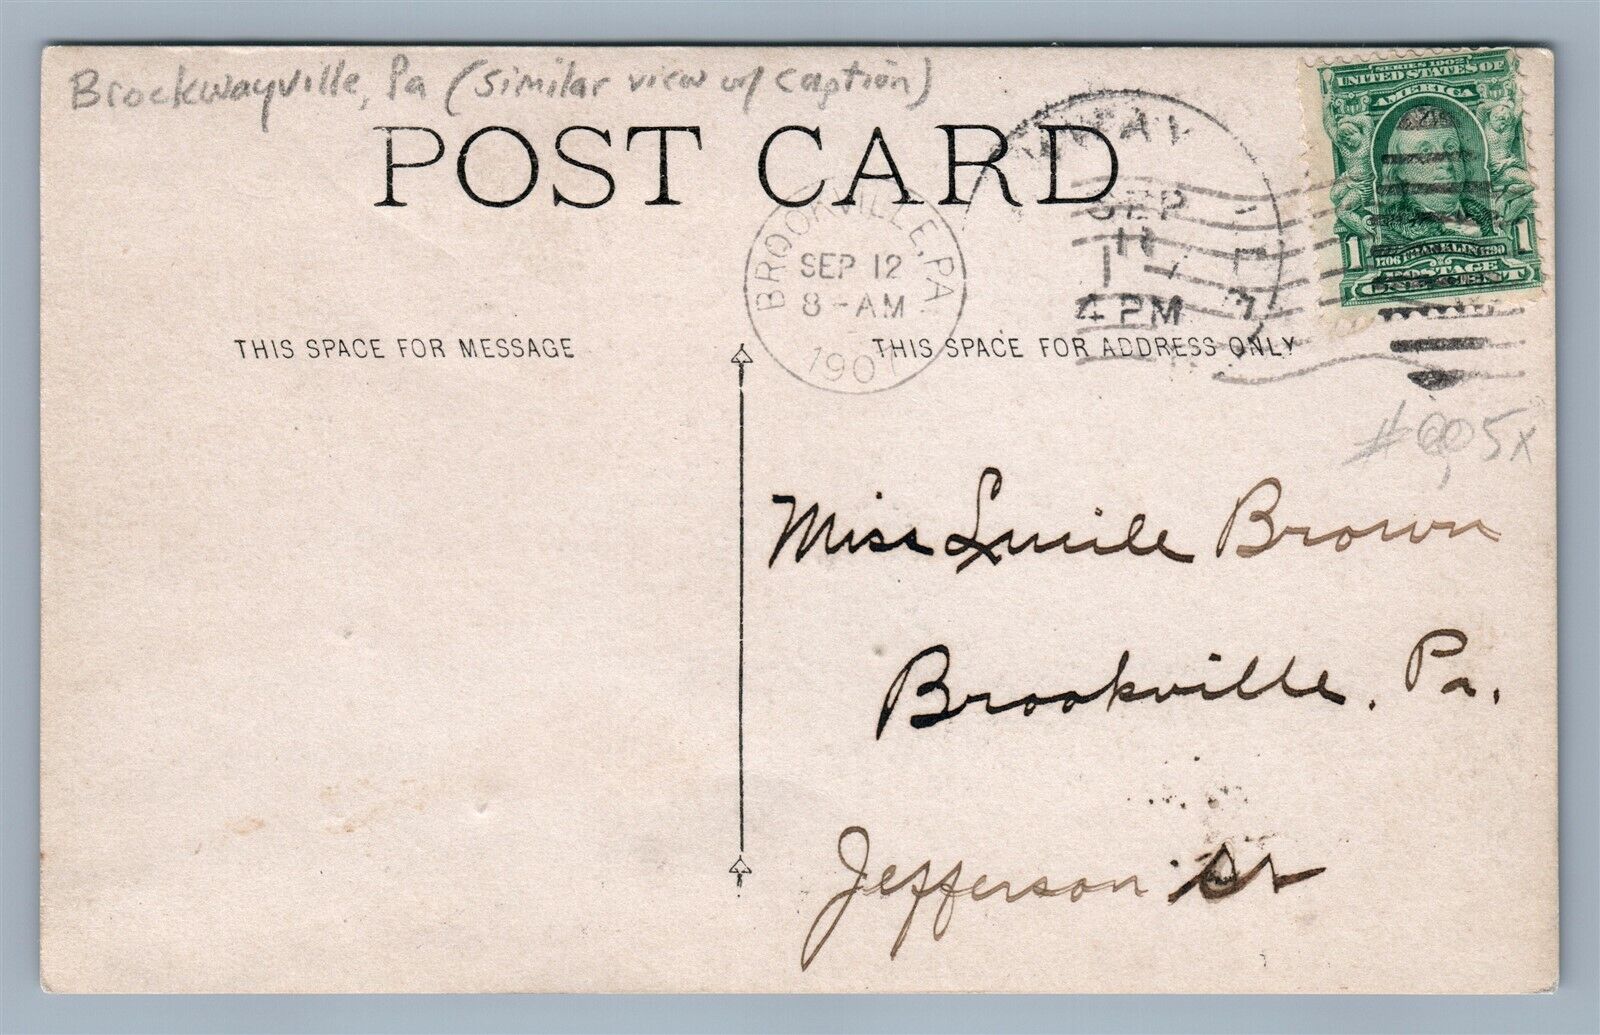 Brockwayville, Pa (similar view w/ caption)
POST CARD
SERIES 1902
UNITED STATES OF
AMERICA
1706 FRANKLIN 1790
1 POSTAGE 1
BROOKVILLE, PA
SEP 12
8-AM
1907
SEP
4 PM
THIS SPACE FOR MESSAGE
THIS SPACE FOR ADDRESS ONLY
Miss Lucile Brown
Brookville, Pa.
Jefferson St